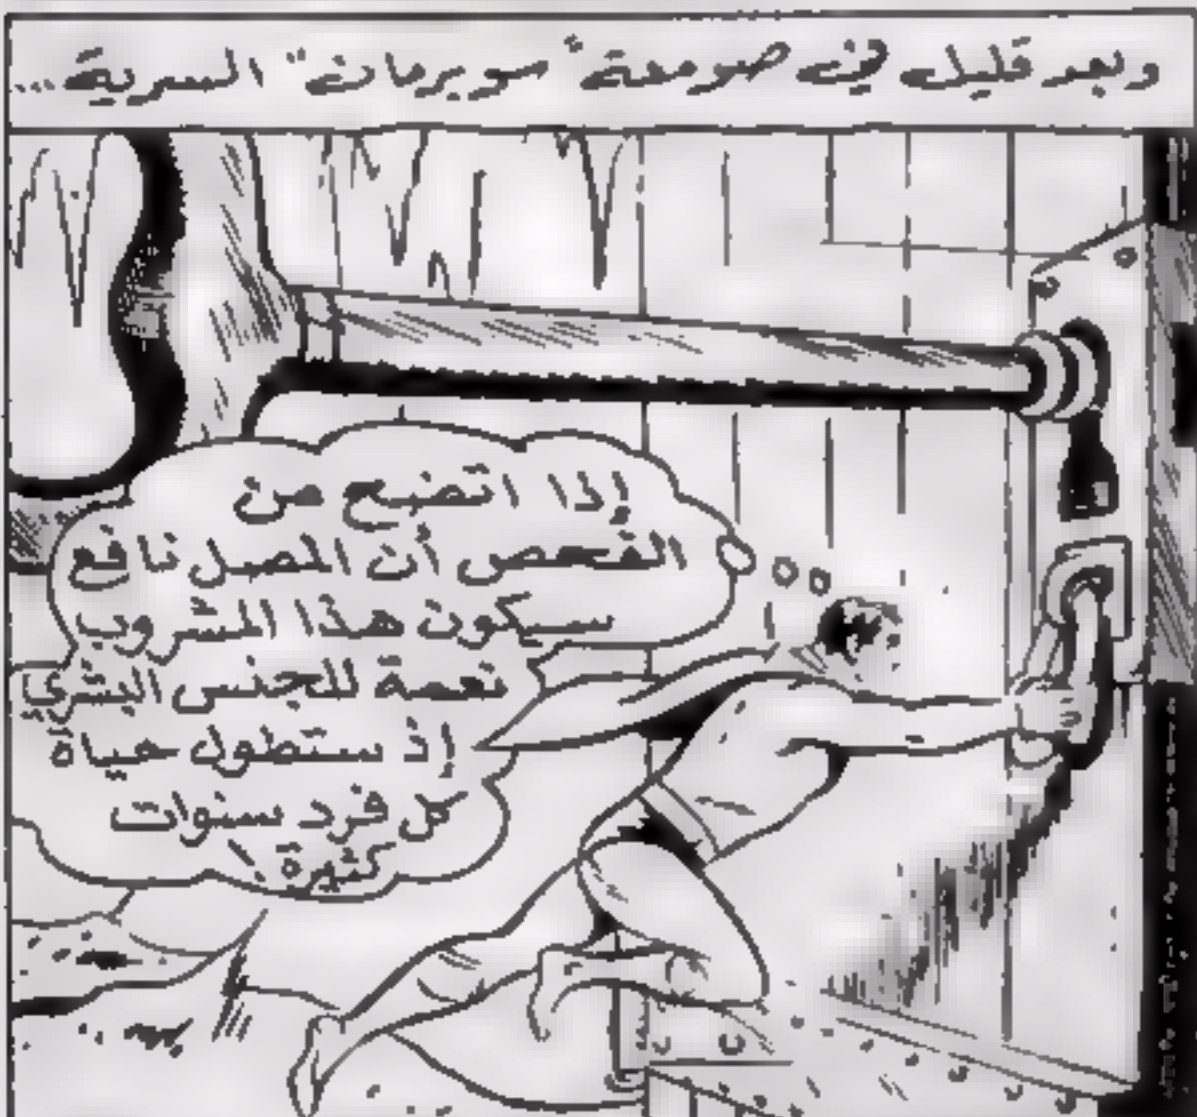 وبعد قليل في صومعة "سوبرمان" السرية...
إذا اتضح من
الفحص أن المصل نافع
سيكون هذا المشروب
نعمة للجنس البشري
إذ ستطول حياة
كل فرد سنوات
كثيرة!